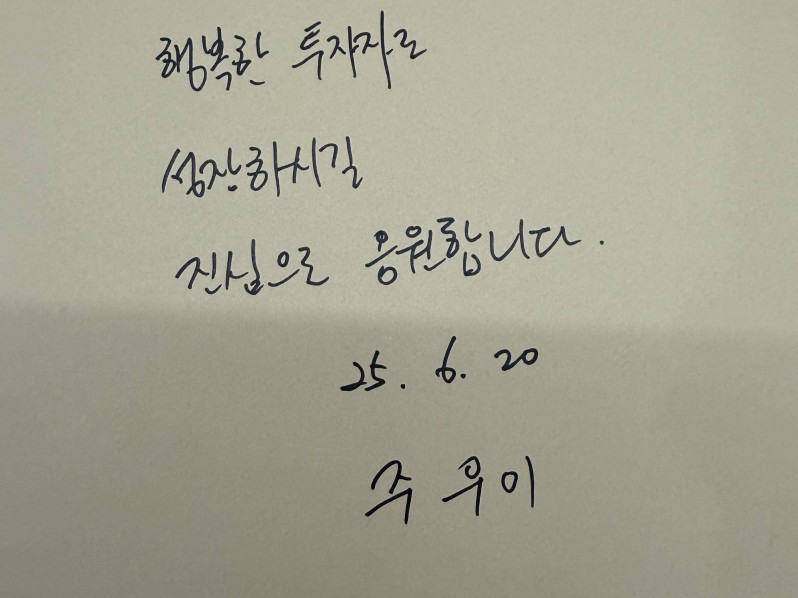 행복한 투자자로
성장하시길
진심으로 응원합니다.
25. 6. 20
주 우이